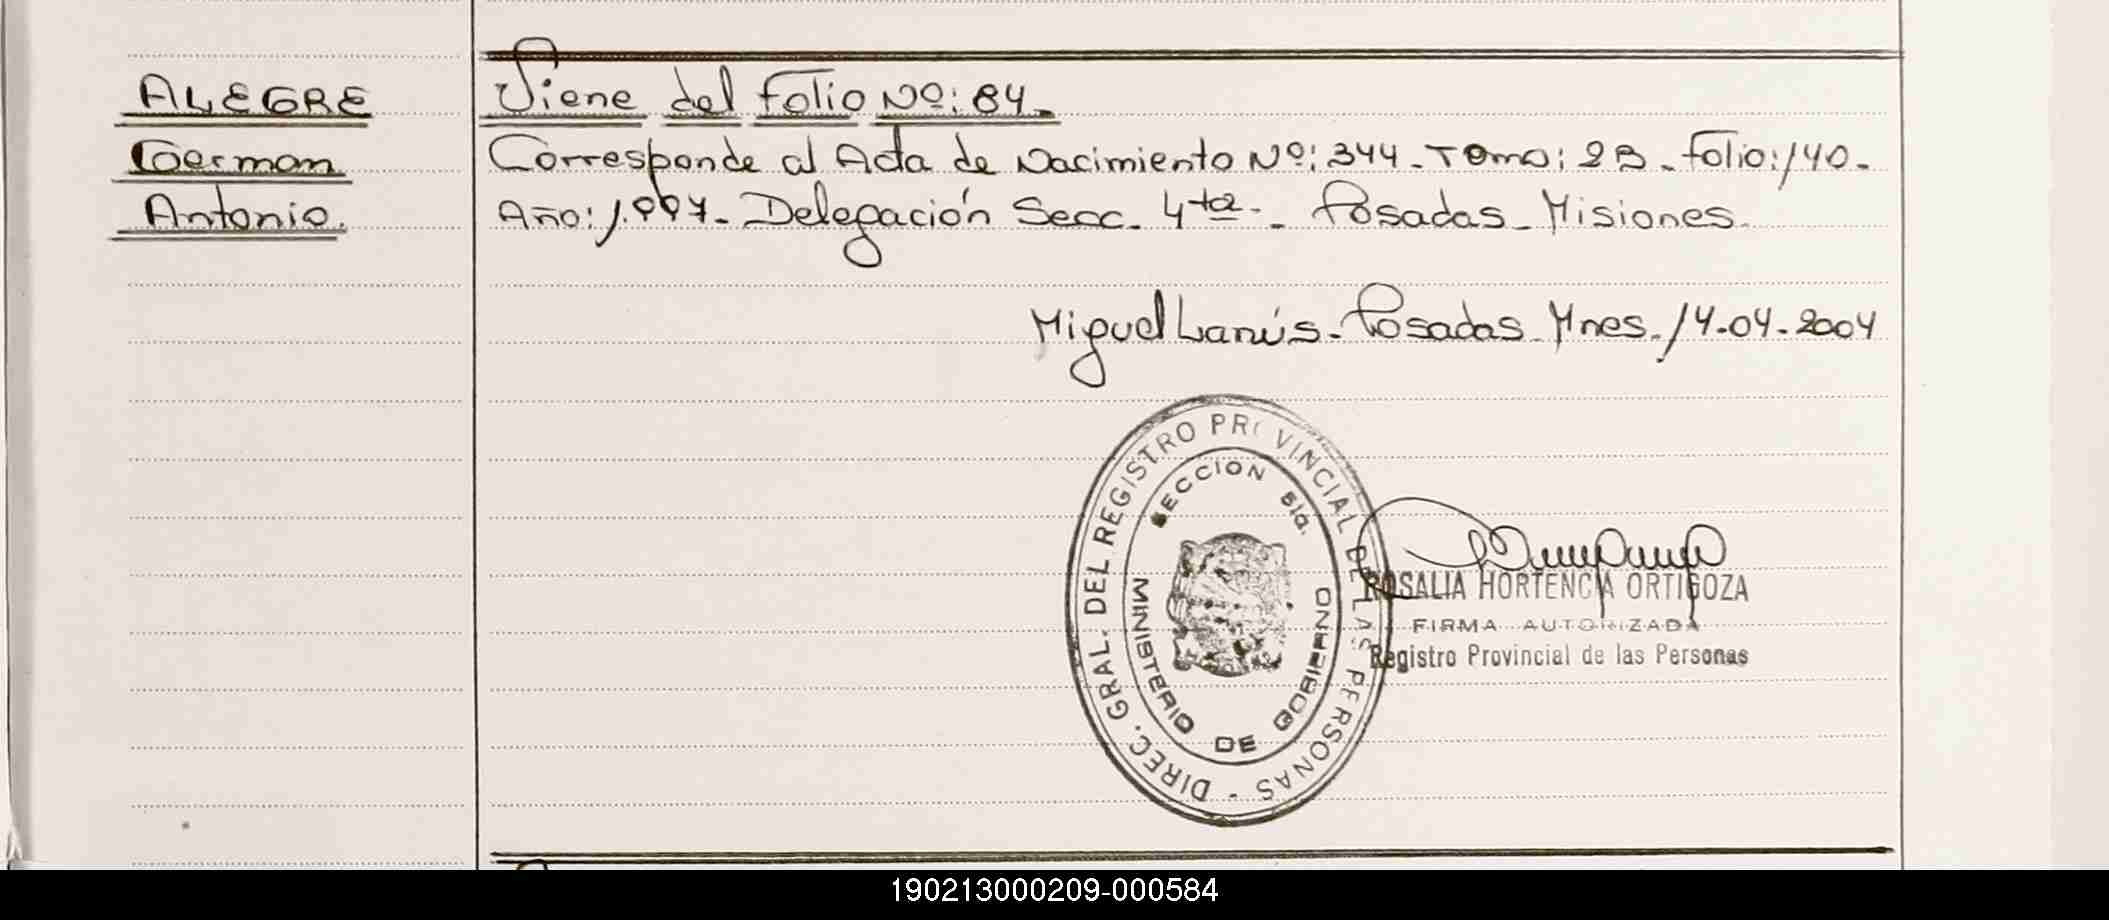 ALEGRE
German
Antonio.
Viene del Folio Nº: 84.
Corresponde al Acta de Nacimiento Nº: 344. Tomo: 2B. Folio: 140.
Año: 1.997. Delegación Secc. 4ta. Posadas. Misiones.
Miguel Lanús. Posadas. Mnes. 14-04-2004
DIREC. GRAL. DEL REGISTRO PROVINCIAL DE LAS PERSONAS -
SECCION 5ta.
MINISTERIO DE GOBIERNO
ROSALIA HORTENCIA ORTIGOZA
FIRMA AUTORIZADA
Registro Provincial de las Personas
190213000209-000584